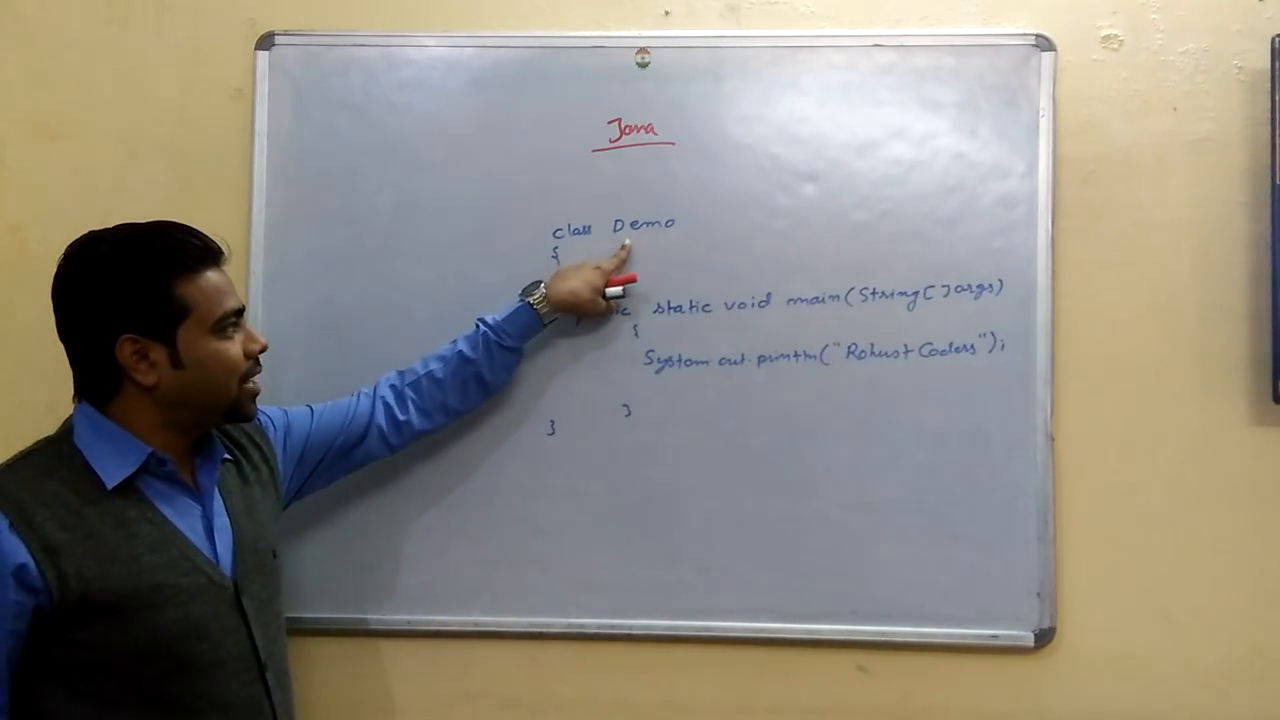 Java
class Demo
{
ic static void main(String[] args)
{
System.out.println("Robust Coders");
}
}